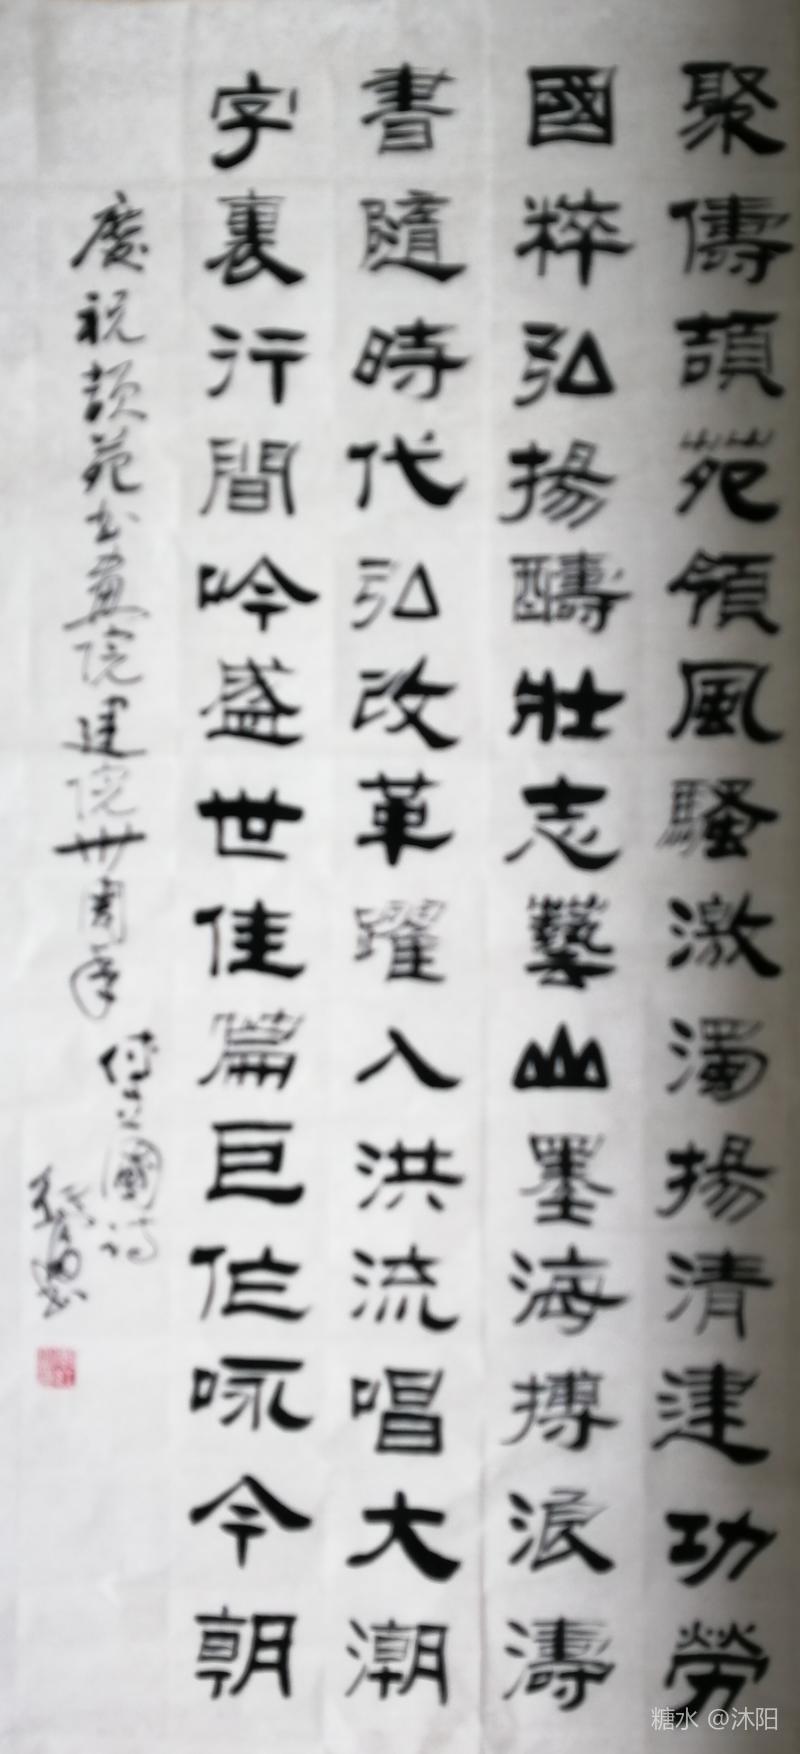 聚儔頡苑領風騷激濁揚清建功勞
國粹弘揚醻壯志藝山墨海搏浪濤
書隨時代弘改革躍入洪流唱大潮
字裏行間吟盛世佳篇巨作咏今朝
慶祝頡苑书画院建院卅周年
國诗
糖水 @沐阳